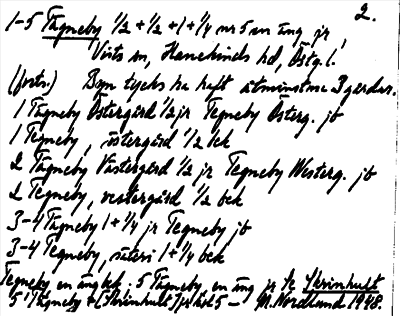 2.
1-5 Tägneby 1/2 + 1/2 + 1 + 1/4 nr 5 en äng jr,
Vists sn, Hanekinds hd, Östg. l.
(forts.) Byn tycks ha haft åtminstone 3 gerdar.
1 Tägneby Östergård 1/2 jr Tegneby Österg. jb
1 Tegneby, östergård 1/2 bek
2 Tägneby Västergård 1/2 jr Tegneby Westerg. jb
2 Tegneby, vestergård 1/2 bek
3-4 Tägneby 1 + 1/4 jr Tegneby jb
3-4 Tegneby, säteri 1 + 1/4 bek
Tegneby, en äng bek. 5 Tägneby, en äng jr Se Skrinhult
5 Tägneby + (Skrinhult) jr 5 - M. Nordlund 1948.